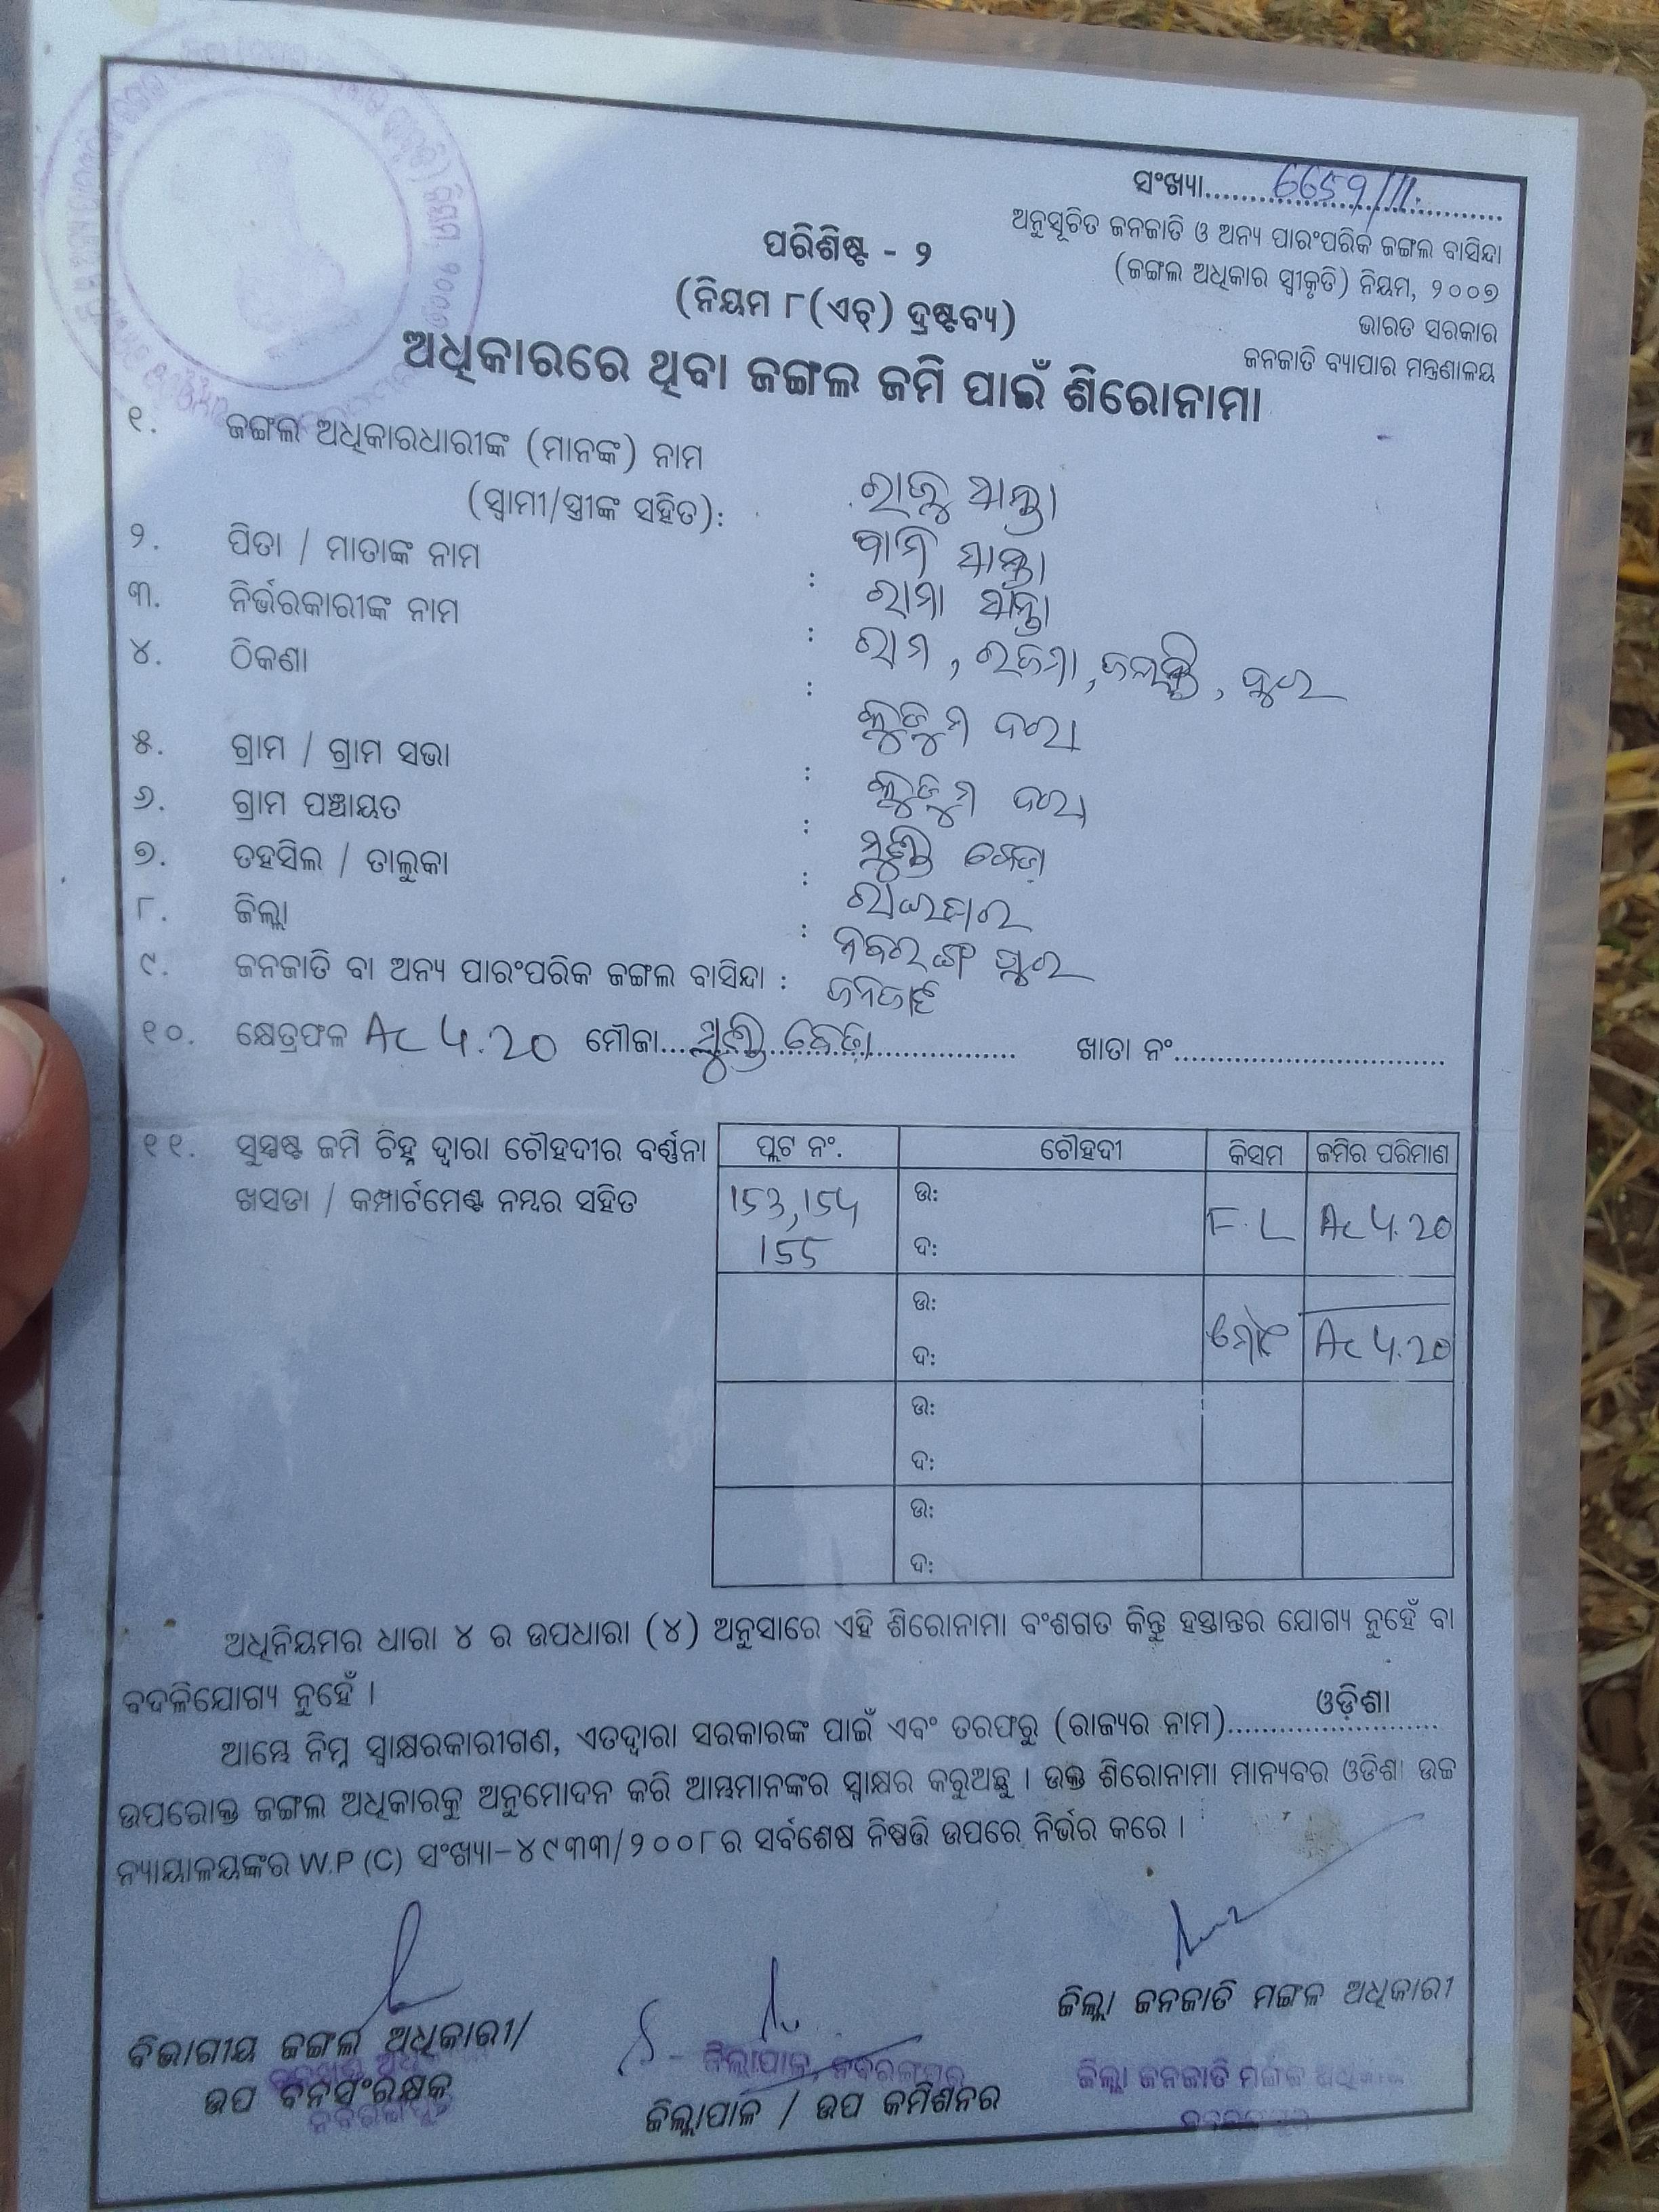 ସଂଖ୍ୟା
ଅନୁସୂଚିତ ଜନଜାତି ଓ ଅନ୍ୟ ପାରଂପରିକ ଜଙ୍ଗଲ ବାସିନ୍ଦା
(ଜଙ୍ଗଲ ଅଧିକାର ସ୍ୱୀକୃତି) ନିୟମ, ୨୦୦୭
ଭାରତ ସରକାର
ଜନଜାତି ବ୍ୟାପାର ମନ୍ତ୍ରଣାଳୟ
ପରିଶିଷ୍ଟ - ୨
(ନିୟମ ୮(ଏଚ୍) ଦ୍ରଷ୍ଟବ୍ୟ)
ଅଧିକାରରେ ଥିବା ଜଙ୍ଗଲ ଜମି ପାଇଁ ଶିରୋନାମା
୧. ଜଙ୍ଗଲ ଅଧିକାରଧାରୀଙ୍କ (ମାନଙ୍କ) ନାମ
(ସ୍ୱାମୀ/ସ୍ତ୍ରୀଙ୍କ ସହିତ): ରାଜୁ ସାନ୍ତା
୨. ପିତା / ମାତାଙ୍କ ନାମ : ରାମା ସାନ୍ତା
୩. ନିର୍ଭରକାରୀଙ୍କ ନାମ : ରାମ
୪. ଠିକଣା :
୫. ଗ୍ରାମ / ଗ୍ରାମ ସଭା :
୬. ଗ୍ରାମ ପଞ୍ଚାୟତ :
୭. ତହସିଲ / ତାଲୁକା : ରାଇଘର
୮. ଜିଲ୍ଲା : ନବରଙ୍ଗପୁର
୯. ଜନଜାତି ବା ଅନ୍ୟ ପାରଂପରିକ ଜଙ୍ଗଲ ବାସିନ୍ଦା : ଜନଜାତି
୧୦. କ୍ଷେତ୍ରଫଳ Ac 4.20 ମୌଜା ଖାତା ନଂ
୧୧. ସୁସ୍ପଷ୍ଟ ଜମି ଚିହ୍ନ ଦ୍ୱାରା ଚୌହଦୀର ବର୍ଣ୍ଣନା
ଖସଡା / କମ୍ପାର୍ଟମେଣ୍ଟ ନମ୍ବର ସହିତ
ପ୍ଲଟ ନଂ. ଚୌହଦୀ କିସମ ଜମିର ପରିମାଣ
153, 154 ଉ: F.L Ac 4.20
155 ଦ:
ଉ: ମୋଟ Ac 4.20
ଦ:
ଉ:
ଦ:
ଉ:
ଦ:
ଅଧିନିୟମର ଧାରା ୪ ର ଉପଧାରା (୪) ଅନୁସାରେ ଏହି ଶିରୋନାମା ବଂଶଗତ କିନ୍ତୁ ହସ୍ତାନ୍ତର ଯୋଗ୍ୟ ନୁହେଁ ବା
ବଦଳିଯୋଗ୍ୟ ନୁହେଁ ।
ଆମ୍ଭେ ନିମ୍ନ ସ୍ୱାକ୍ଷରକାରୀଗଣ, ଏତଦ୍ୱାରା ସରକାରଙ୍କ ପାଇଁ ଏବଂ ତରଫରୁ (ରାଜ୍ୟର ନାମ) ଓଡ଼ିଶା
ଉପରୋକ୍ତ ଜଙ୍ଗଲ ଅଧିକାରକୁ ଅନୁମୋଦନ କରି ଆମ୍ଭମାନଙ୍କର ସ୍ୱାକ୍ଷର କରୁଅଛୁ । ଉକ୍ତ ଶିରୋନାମା ମାନ୍ୟବର ଓଡିଶା ଉଚ୍ଚ
ନ୍ୟାୟାଳୟଙ୍କର W.P (C) ସଂଖ୍ୟା-୪୯୩୩/୨୦୦୮ର ସର୍ବଶେଷ ନିଷ୍ପତ୍ତି ଉପରେ ନିର୍ଭର କରେ ।
ଜିଲ୍ଲା ଜନଜାତି ମଙ୍ଗଳ ଅଧିକାରୀ
ବିଭାଗୀୟ ଜଙ୍ଗଲ ଅଧିକାରୀ/
ଉପ ବନସଂରକ୍ଷକ
ଜିଲ୍ଲାପାଳ, ନବରଙ୍ଗପୁର
ଜିଲ୍ଲାପାଳ / ଉପ କମିଶନର
ଜିଲ୍ଲା ଜନଜାତି ମଙ୍ଗଳ ଅଧିକାରୀ
ନବରଙ୍ଗପୁର